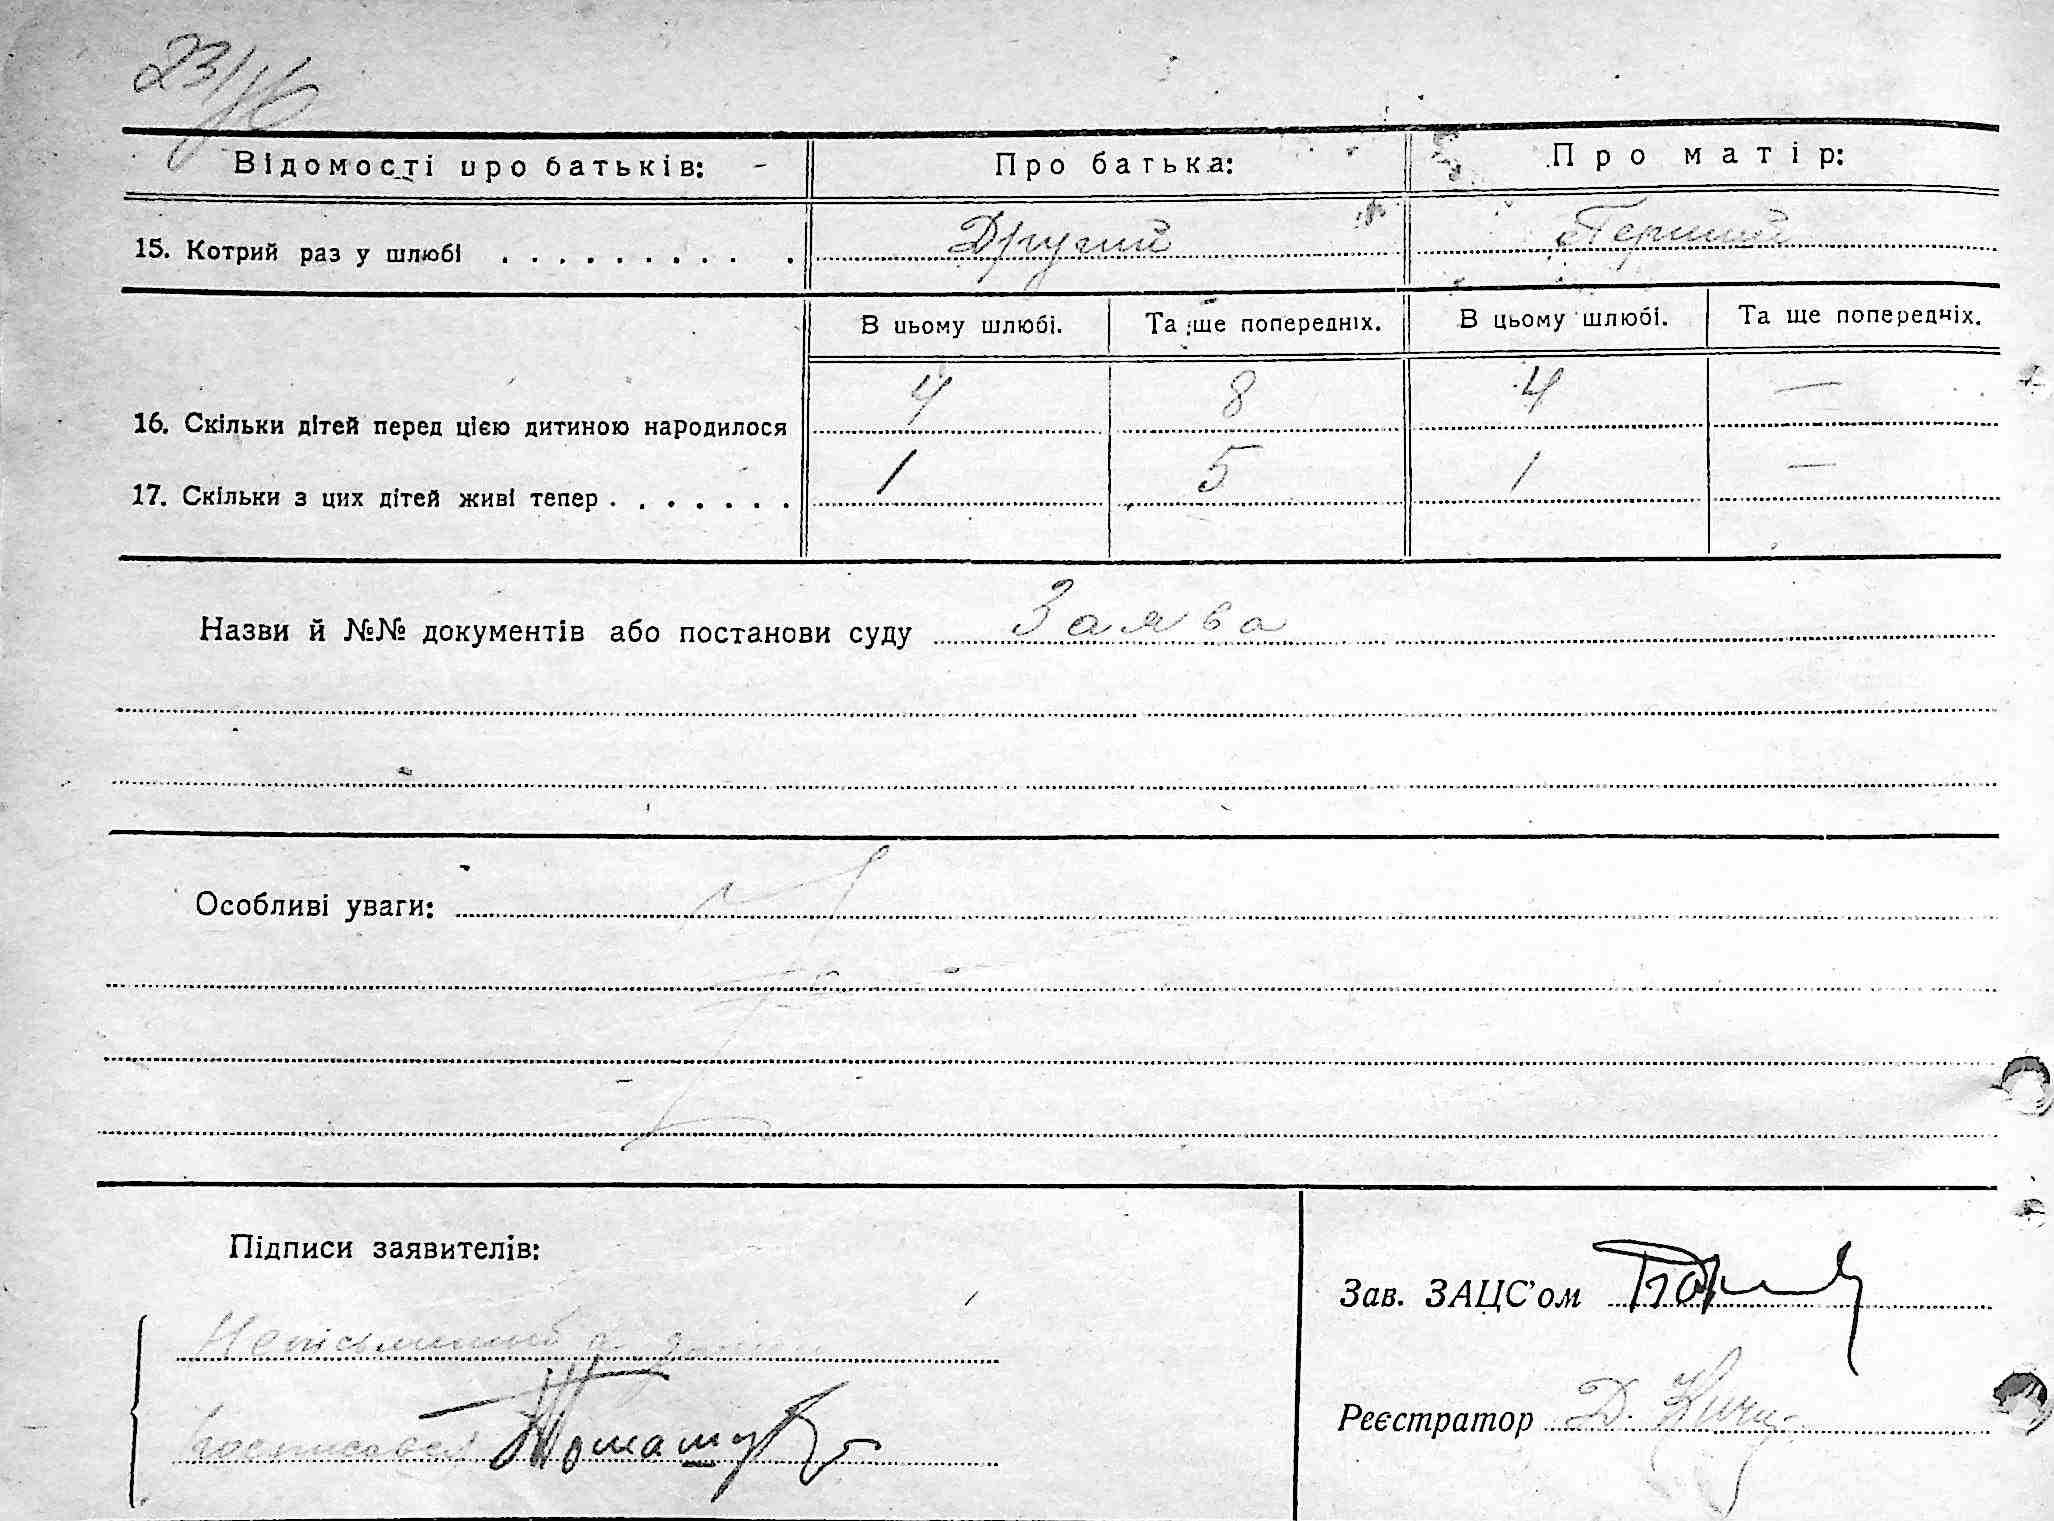 Відомості про батьків: Про батька: Про матір:
15. Котрий раз у шлюбі . . . . . . . . . . . Другий Перший
В цьому шлюбі. Та ще попередніх. В цьому шлюбі. Та ще попередніх.
16. Скільки дітей перед цією дитиною народилося 4 8 4 —
17. Скільки з цих дітей живі тепер . . . . . . . 1 5 1 —
Назви й №№ документів або постанови суду Заява
Особливі уваги:
Підписи заявителів:
Зав. ЗАЦС’ом
Неписьменний
Реєстратор Д.
расписався